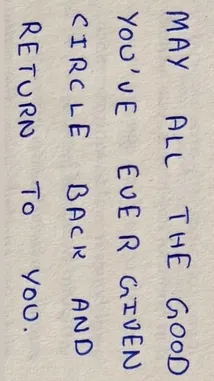 MAY ALL THE GOOD
YOU'VE EVER GIVEN
CIRCLE BACK AND
RETURN TO YOU.